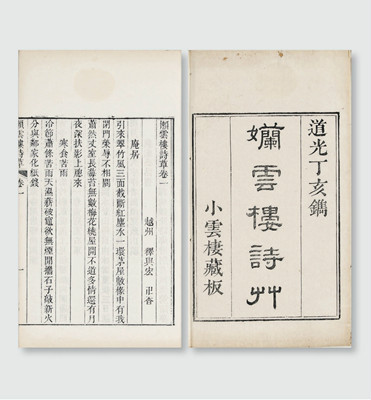 道光丁亥鐫
嬾雲樓詩艸
小雲棲藏板
嬾雲樓詩草卷一
越州 釋與宏 卍香
庵居
引來翠竹風三面截斷紅塵水一環茅屋數椽中有我
閉門榮辱不相關
蕭然丈室長莓苔無數梅花屋開不道多情還有月
夜深扶影上來
寒食苦雨
冷節蕭條苦雨天濕薪竈欲無煙閒攜石子敲新火
分與鄰家化紙錢
嬾雲樓詩草 卷一 一